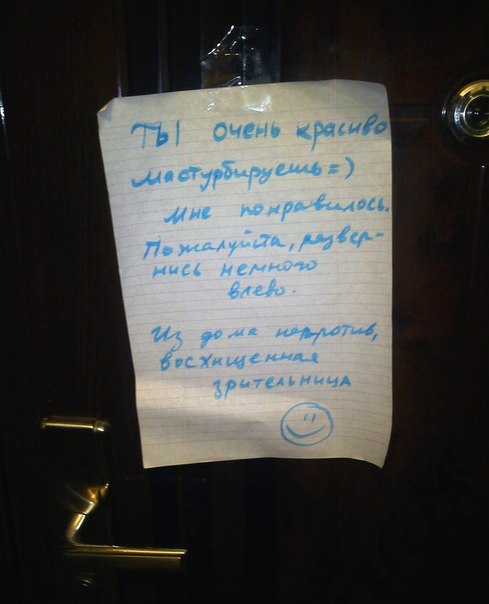 Ты очень красиво
мастурбируешь=)
Мне понравилось.
Пожалуйста, развер-
нись немного
влево.
Из дома напротив,
восхищенная
зрительница